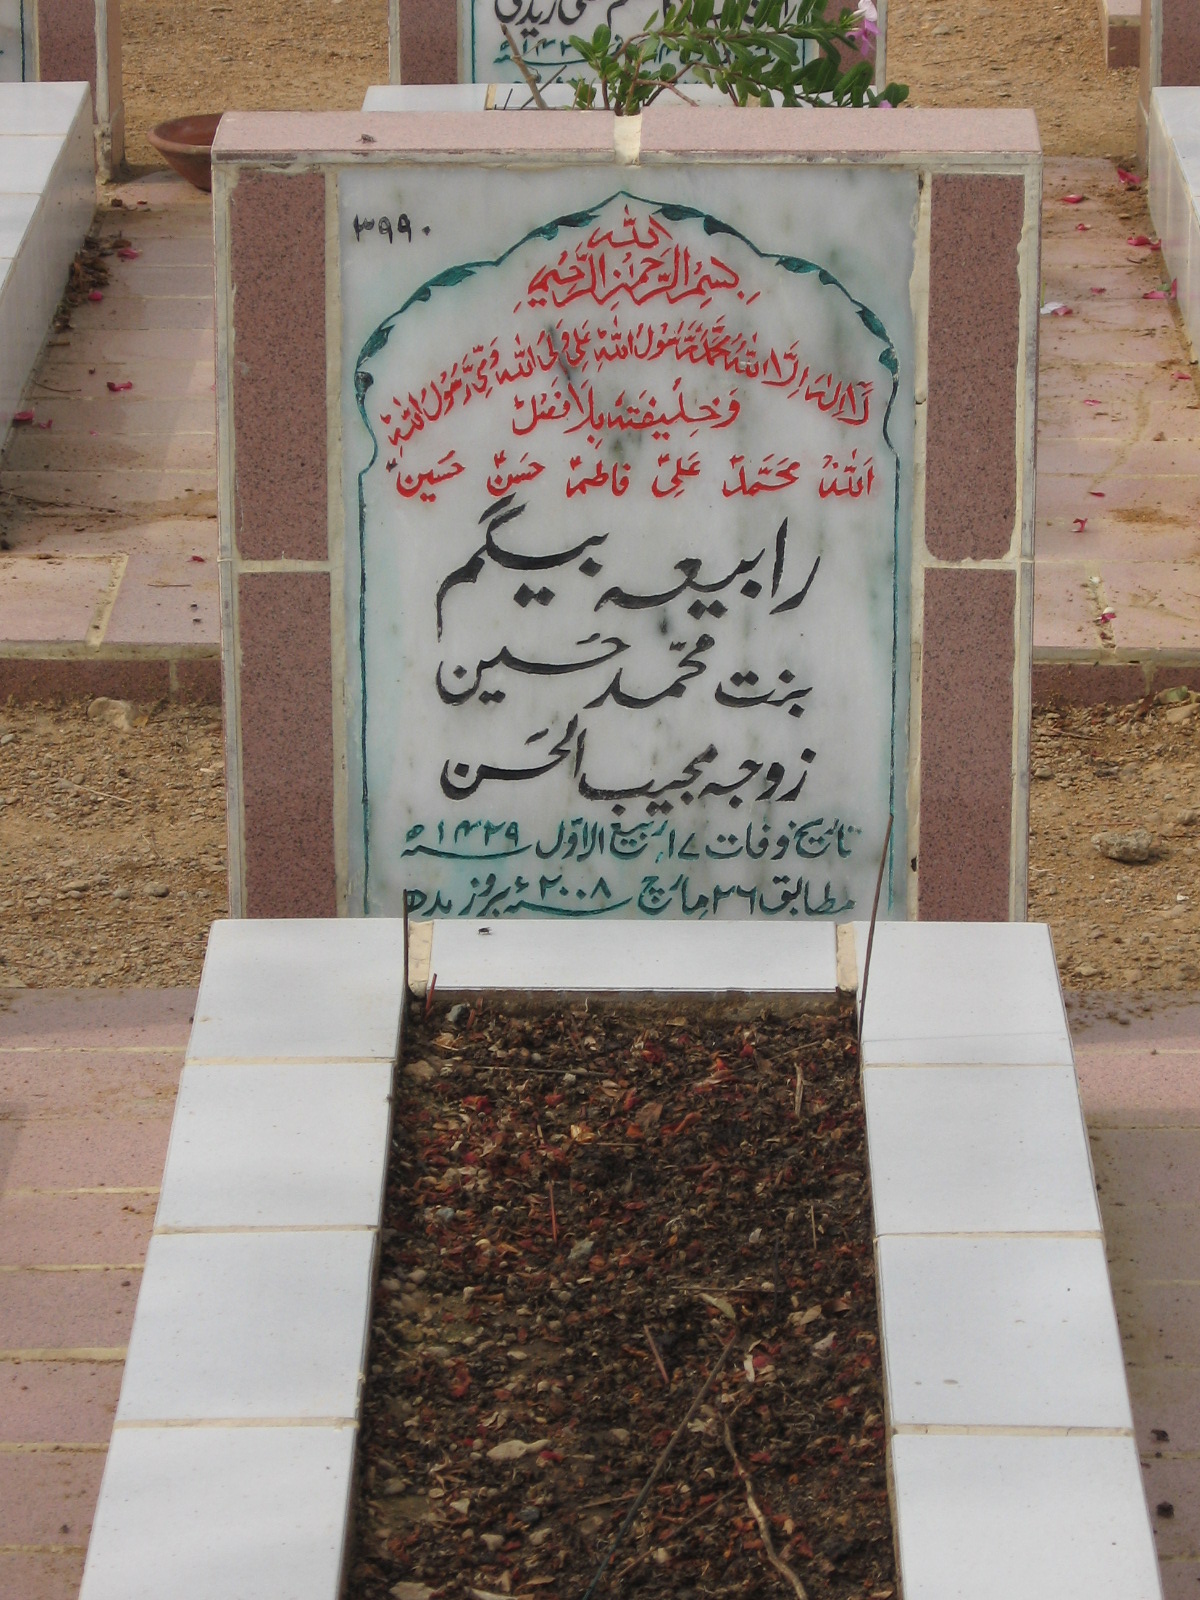 ۳۹۹۰
الله
بِسْمِ الرَّحْمٰنِ الرَّحِيْمِ
لَا اِلٰهَ اِلَّا اللهُ مُحَمَّدٌ رَّسُوْلُ اللهِ عَلِيٌّ وَلِيُّ اللهِ وَصِيُّ رَسُوْلِ اللهِ
وَخَلِيْفَتُهٗ بِلَا فَصْلٍ
اَللهُ مُحَمَّدٌ عَلِيٌّ فاطمہؑ حَسَنؑ حُسَینؑ
رابیعہ بیگم
بنت محمّد حُسین
زوجہ مجیب الحَسَن
تاریخ وفات ۱۷ ربیع الاوّل ۱۴۲۹ھ
مطابق ۲۶ مارچ ۲۰۰۸ء بروز بدھ